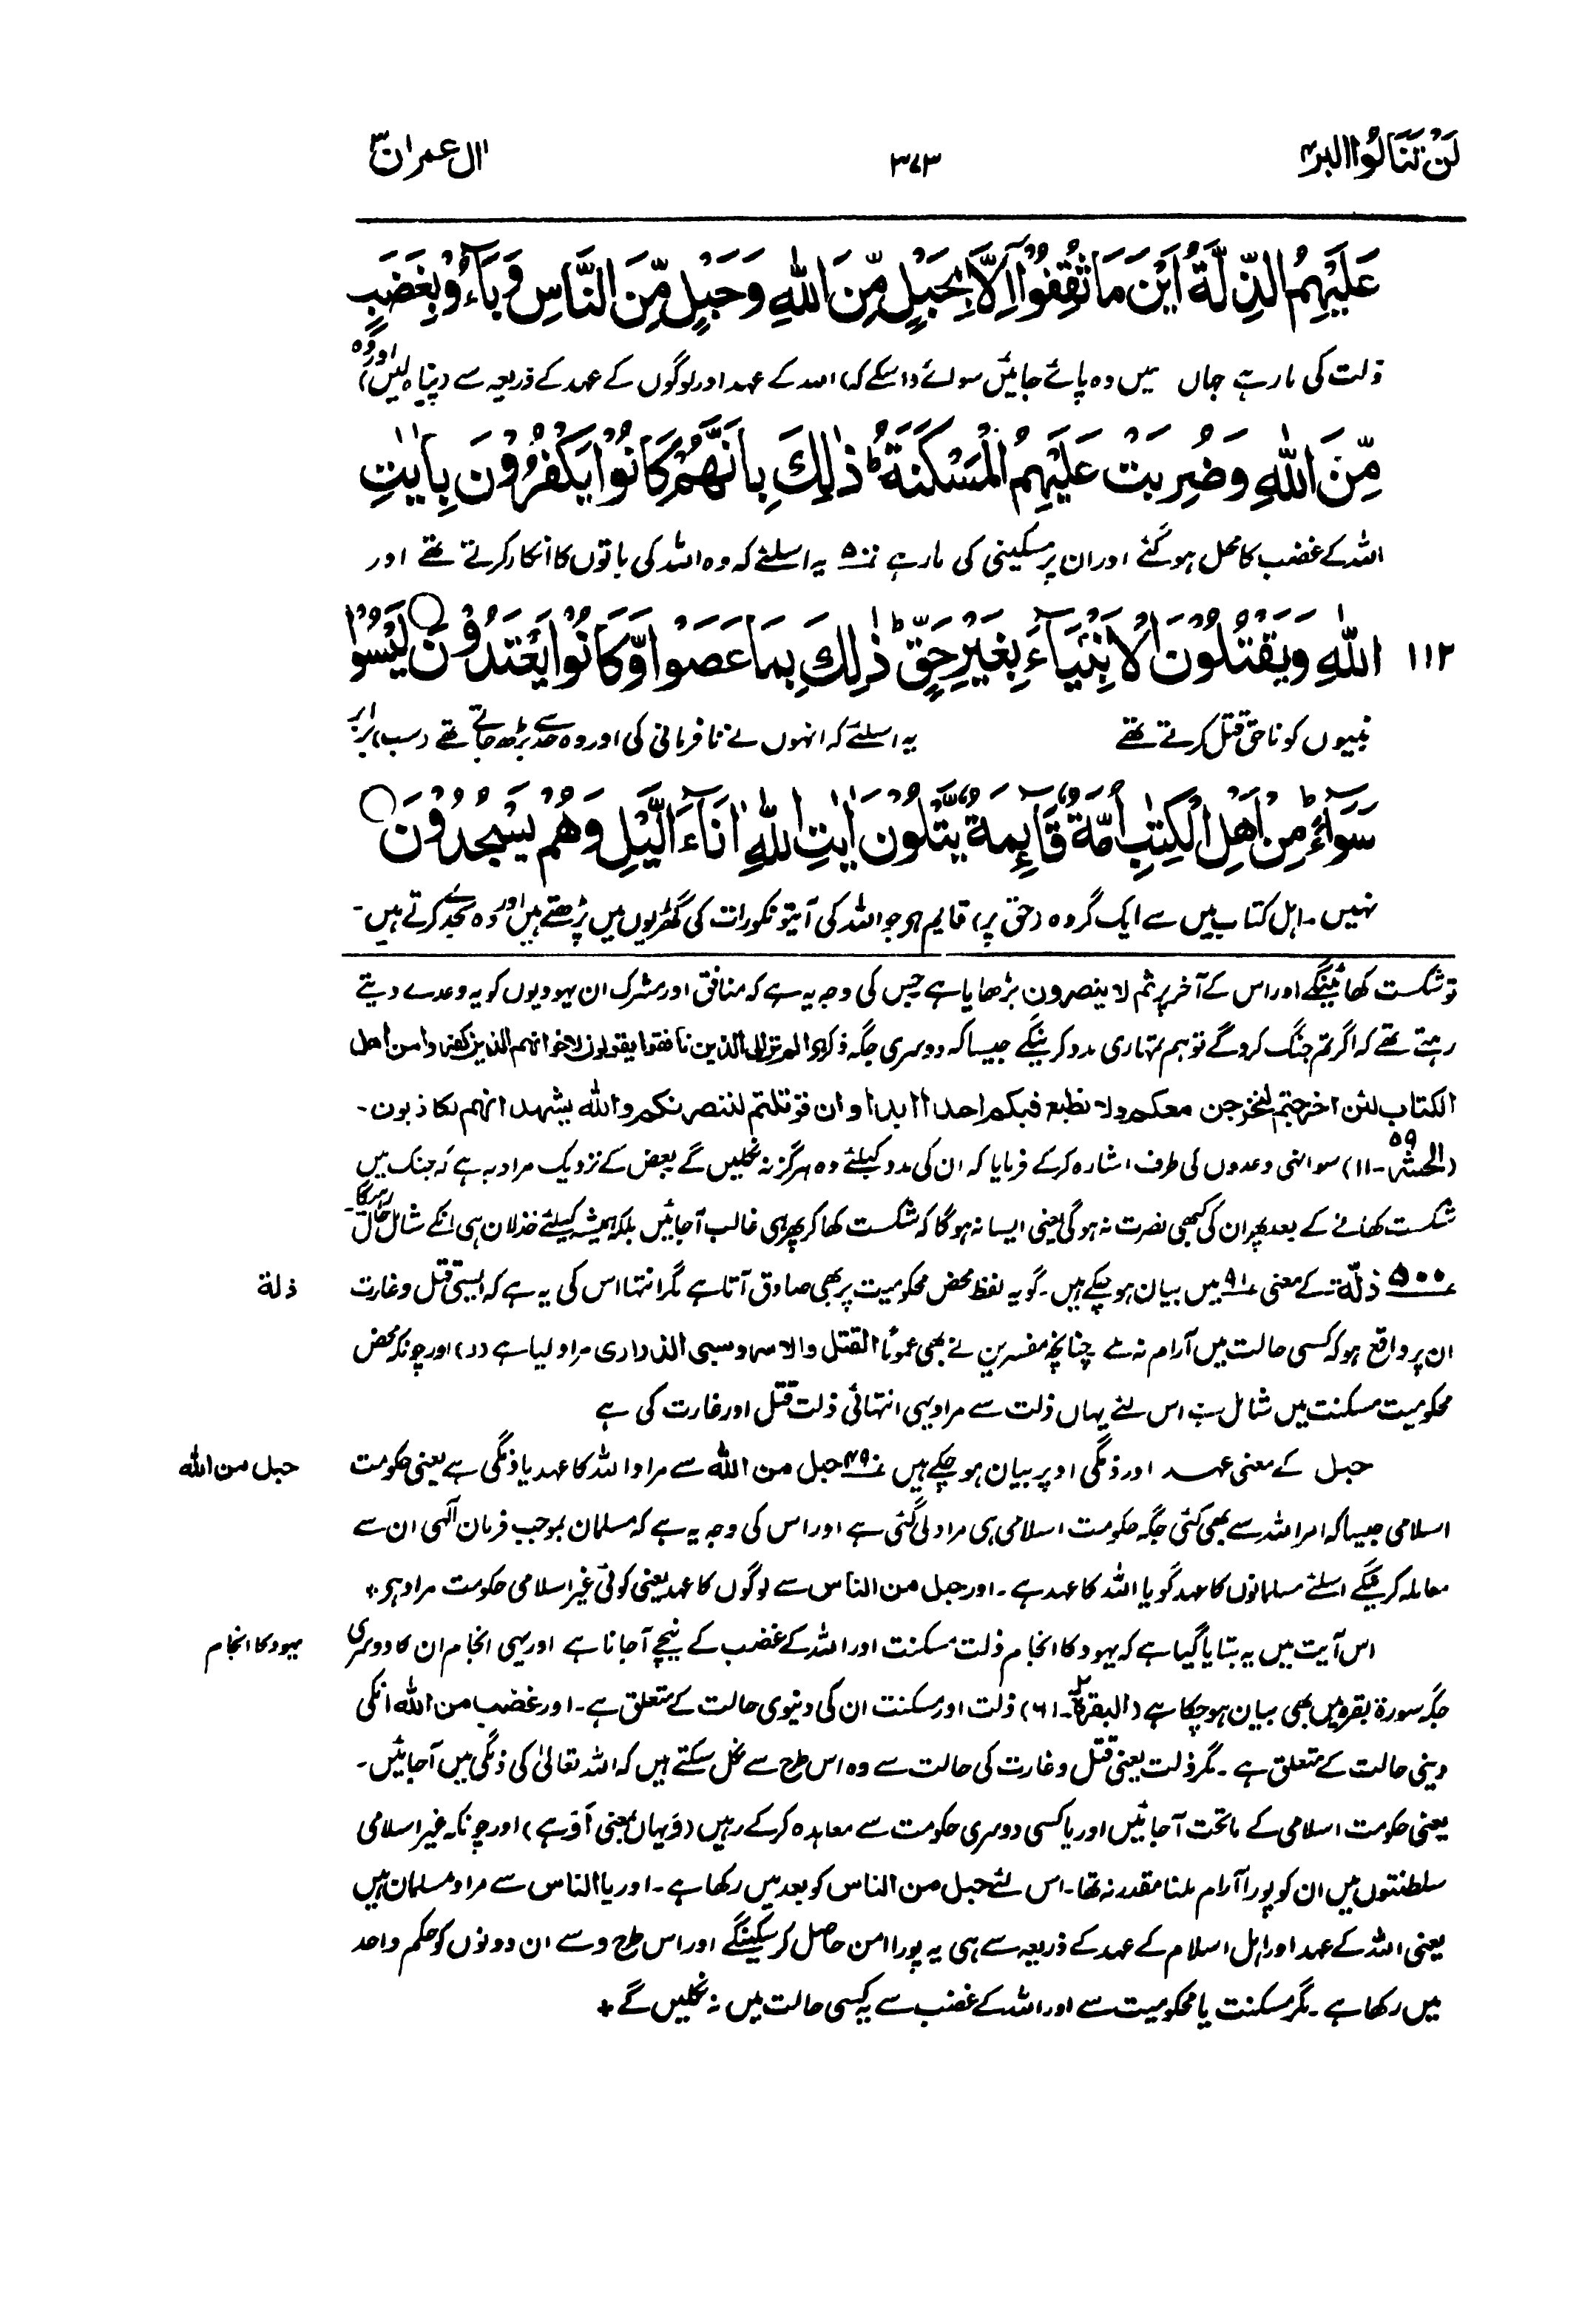 لَنْ تَنَالُوا البر ۴
۳۷۳
اٰل عمران ۳
عَلَيْهِمُ الذِّلَّةُ اَيْنَ مَا ثُقِفُوْۤا اِلَّا بِحَبْلٍ مِّنَ اللّٰهِ وَحَبْلٍ مِّنَ النَّاسِ وَبَآءُوْ بِغَضَبٍ
ذلت کی مار ہے جہاں کہیں وہ پائے جائیں سوائے (اسکے کہ) اللہ کے عہد اور لوگوں کے عہد کے ذریعہ سے (پناہ لیں) اور وہ
مِّنَ اللّٰهِ وَضُرِبَتْ عَلَيْهِمُ الْمَسْكَنَةُ ؕ ذٰلِكَ بِاَنَّهُمْ كَانُوْا يَكْفُرُوْنَ بِاٰيٰتِ
اللہ کے غضب کا محل ہو گئے اور ان پر مسکینی کی مار ہے ۵۰۰ یہ اسلئے کہ وہ اللہ کی باتوں کا انکار کرتے تھے اور
۱۱۲ اللّٰهِ وَيَقْتُلُوْنَ الْاَنْۢبِيَآءَ بِغَيْرِ حَقٍّ ؕ ذٰلِكَ بِمَا عَصَوْا وَّكَانُوْا يَعْتَدُوْنَ ○ لَيْسُوْا
نبیوں کو ناحق قتل کرتے تھے یہ اسلئے کہ انہوں نے نافرمانی کی اور وہ حد سے بڑھ جاتے تھے (سب) برابر
سَوَآءً ؕ مِنْ اَهْلِ الْكِتٰبِ اُمَّةٌ قَآئِمَةٌ يَّتْلُوْنَ اٰيٰتِ اللّٰهِ اٰنَآءَ الَّيْلِ وَهُمْ يَسْجُدُوْنَ ○
نہیں۔ اہل کتاب میں سے ایک گروہ (حق پر) قایم ہے جو اللہ کی آیتونکو رات کی گھڑیوں میں پڑھتے ہیں اور وہ سجدے کرتے ہیں۔
تو شکست کھائینگے اور اس کے آخر پر ثم لا ینصرون بڑھایا ہے جس کی وجہ یہ ہے کہ منافق اور مشرک ان یہودیوں کو یہ وعدے دیتے
رہتے تھے کہ اگر تم جنگ کرو گے تو ہم تمہاری مدد کرینگے جیسا کہ دوسری جگہ ذکر ہے الم تر الی الذین نافقوا یقولون لاخوانہم الذین کفروا من اھل
الکتاب لئن اخرجتم لنخرجن معکم ولا نطیع فیکم احدا ابدا وان قوتلتم لننصرنکم واللہ یشہد انہم لکاذبون۔
(الحشر ۵۹-۱۱) سو انہی وعدوں کی طرف اشارہ کرکے فرمایا کہ ان کی مدد کیلئے وہ ہرگز نہ نکلیں گے بعض کے نزدیک مراد یہ ہے کہ جنگ میں
شکست کھانے کے بعد پھر ان کی کبھی نصرت نہ ہوگی یعنی ایسا نہ ہوگا کہ شکست کھا کر پھر بھی غالب آجائیں بلکہ ہمیشہ کیلئے خذلان ہی انکے شامل حال رہیگا۔
۵۰۰ ذلّۃ۔ کے معنی ۹۱ میں بیان ہو چکے ہیں۔ گو یہ لفظ محض محکومیت پر بھی صادق آتا ہے مگر انتہا اس کی یہ ہے کہ ایسی قتل و غارت
ذلة
ان پر واقع ہو کہ کسی حالت میں آرام نہ ملے چنانچہ مفسرین نے بھی عموماً القتل والاسر وسبی الذراری مراد لیا ہے (ر) اور چونکہ محض
محکومیت مسکنت میں شامل ہے اس لئے یہاں ذلت سے مراد یہی انتہائی ذلت قتل اور غارت کی ہے
حبل کے معنی عہد اور ذمگی اوپر بیان ہو چکے ہیں ۴۹۰ حبل من اللہ سے مراد اللہ کا عہد یا ذمگی ہے یعنی حکومت
حبل من اللہ
اسلامی جیسا کہ امر اللہ سے بھی کئی جگہ حکومت اسلامی ہی مراد لی گئی ہے اور اس کی وجہ یہ ہے کہ مسلمان بموجب فرمان آلٰہی ان سے
معاملہ کرینگے اسلئے مسلمانوں کا عہد گویا اللہ کا عہد ہے۔ اور حبل من الناس سے لوگوں کا عہد یعنی کوئی غیر اسلامی حکومت مراد ہے۔
اس آیت میں یہ بتایا گیا ہے کہ یہود کا انجام ذلت مسکنت اور اللہ کے غضب کے نیچے آجانا ہے اور یہی انجام ان کا دوسری
یہود کا انجام
جگہ سورۃ بقرہ میں بھی بیان ہو چکا ہے (البقرۃ ۲-۶۱) ذلت اور مسکنت ان کی دنیوی حالت کے متعلق ہے۔ اور غضب من اللہ انکی
دینی حالت کے متعلق ہے۔ مگر ذلت یعنی قتل و غارت کی حالت سے وہ اس طرح سے نکل سکتے ہیں کہ اللہ تعالیٰ کی ذمگی میں آجائیں۔
یعنی حکومت اسلامی کے ماتحت آجائیں اور یا کسی دوسری حکومت سے معاہدہ کرکے رہیں (وَ یہاں بمعنی اَوْ ہے) اور چونکہ غیر اسلامی
سلطنتوں میں ان کو پورا آرام ملنا مقدر نہ تھا۔ اس لئے حبل من الناس کو بعد میں رکھا ہے۔ اور یا الناس سے مراد مسلمان ہیں
یعنی اللہ کے عہد اور اہل اسلام کے عہد کے ذریعہ سے ہی یہ پورا امن حاصل کر سکینگے اور اس طرح و سے ان دونوں کو حکم واحد
میں رکھا ہے۔ مگر مسکنت یا محکومیت سے اور اللہ کے غضب سے یہ کسی حالت میں نہ نکلیں گے +